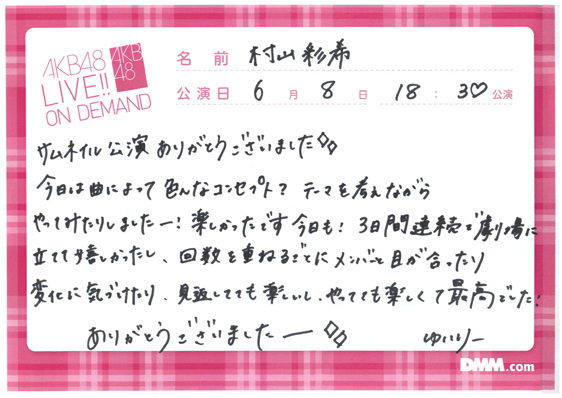 AKB48
LIVE!!
ON DEMAND
AKB
48
名前 村山彩希
公演日 6月8日 18:30公演
サムネイル公演ありがとうございました
今日は曲によって色んなコンセプト?テーマを考えながら
やってみたりしましたー!楽しかったです今日も!3日間連続で劇場に
立てて嬉しかったし、回数を重ねるごとにメンバーと目が合ったり
変化に気づけたり、見返してても楽しいし、やってても楽しくて最高でした!
ありがとうございましたー
ゆいりー
DMM.com